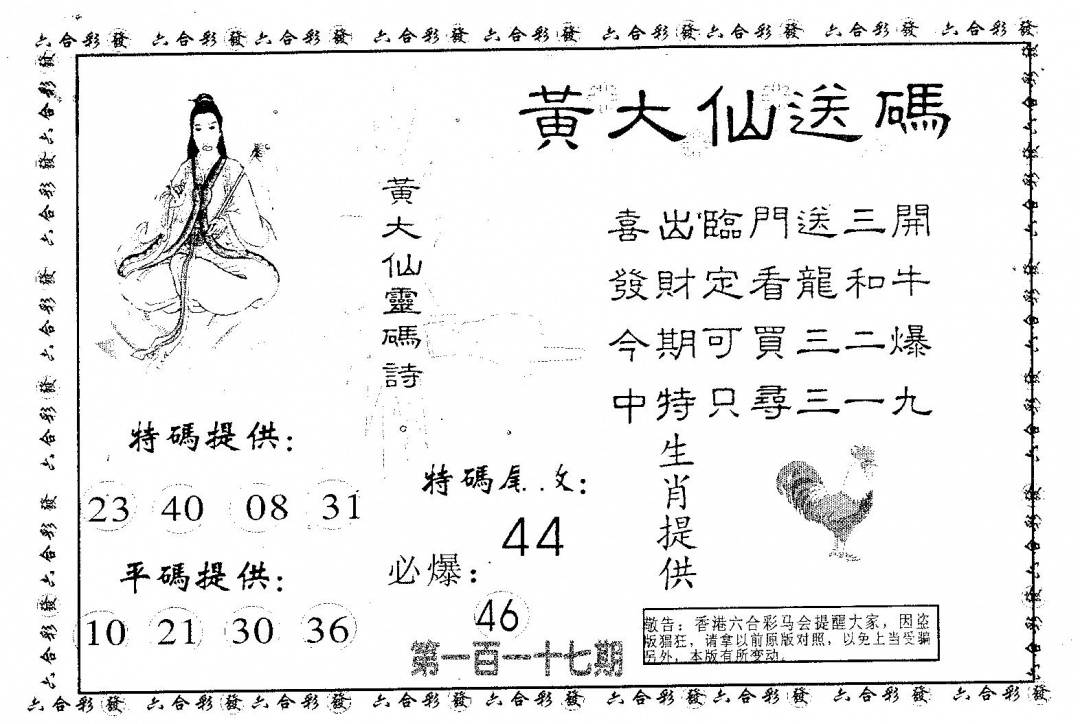 六合彩發 六合彩發六合彩發 六合彩發 六合彩發 六合彩發六合彩發 六合彩發 六合彩發
黃大仙送碼
黃大仙靈碼詩
喜出臨門送三開
發財定看龍和牛
今期可買三二爆
中特只尋三一九
特碼提供:
23 40 08 31
平碼提供:
10 21 30 36
特碼尾
44
必爆:
46
第一百一十七期
生肖提供
敬告：香港六合彩马会提醒大家，因盗
版猖狂，请拿以前原版对照，以免上当受骗
另外，本版有所变动。
六合彩發 六合彩發六合彩發 六合彩發 六合彩發 六合彩發六合彩發 六合彩發 六合彩發